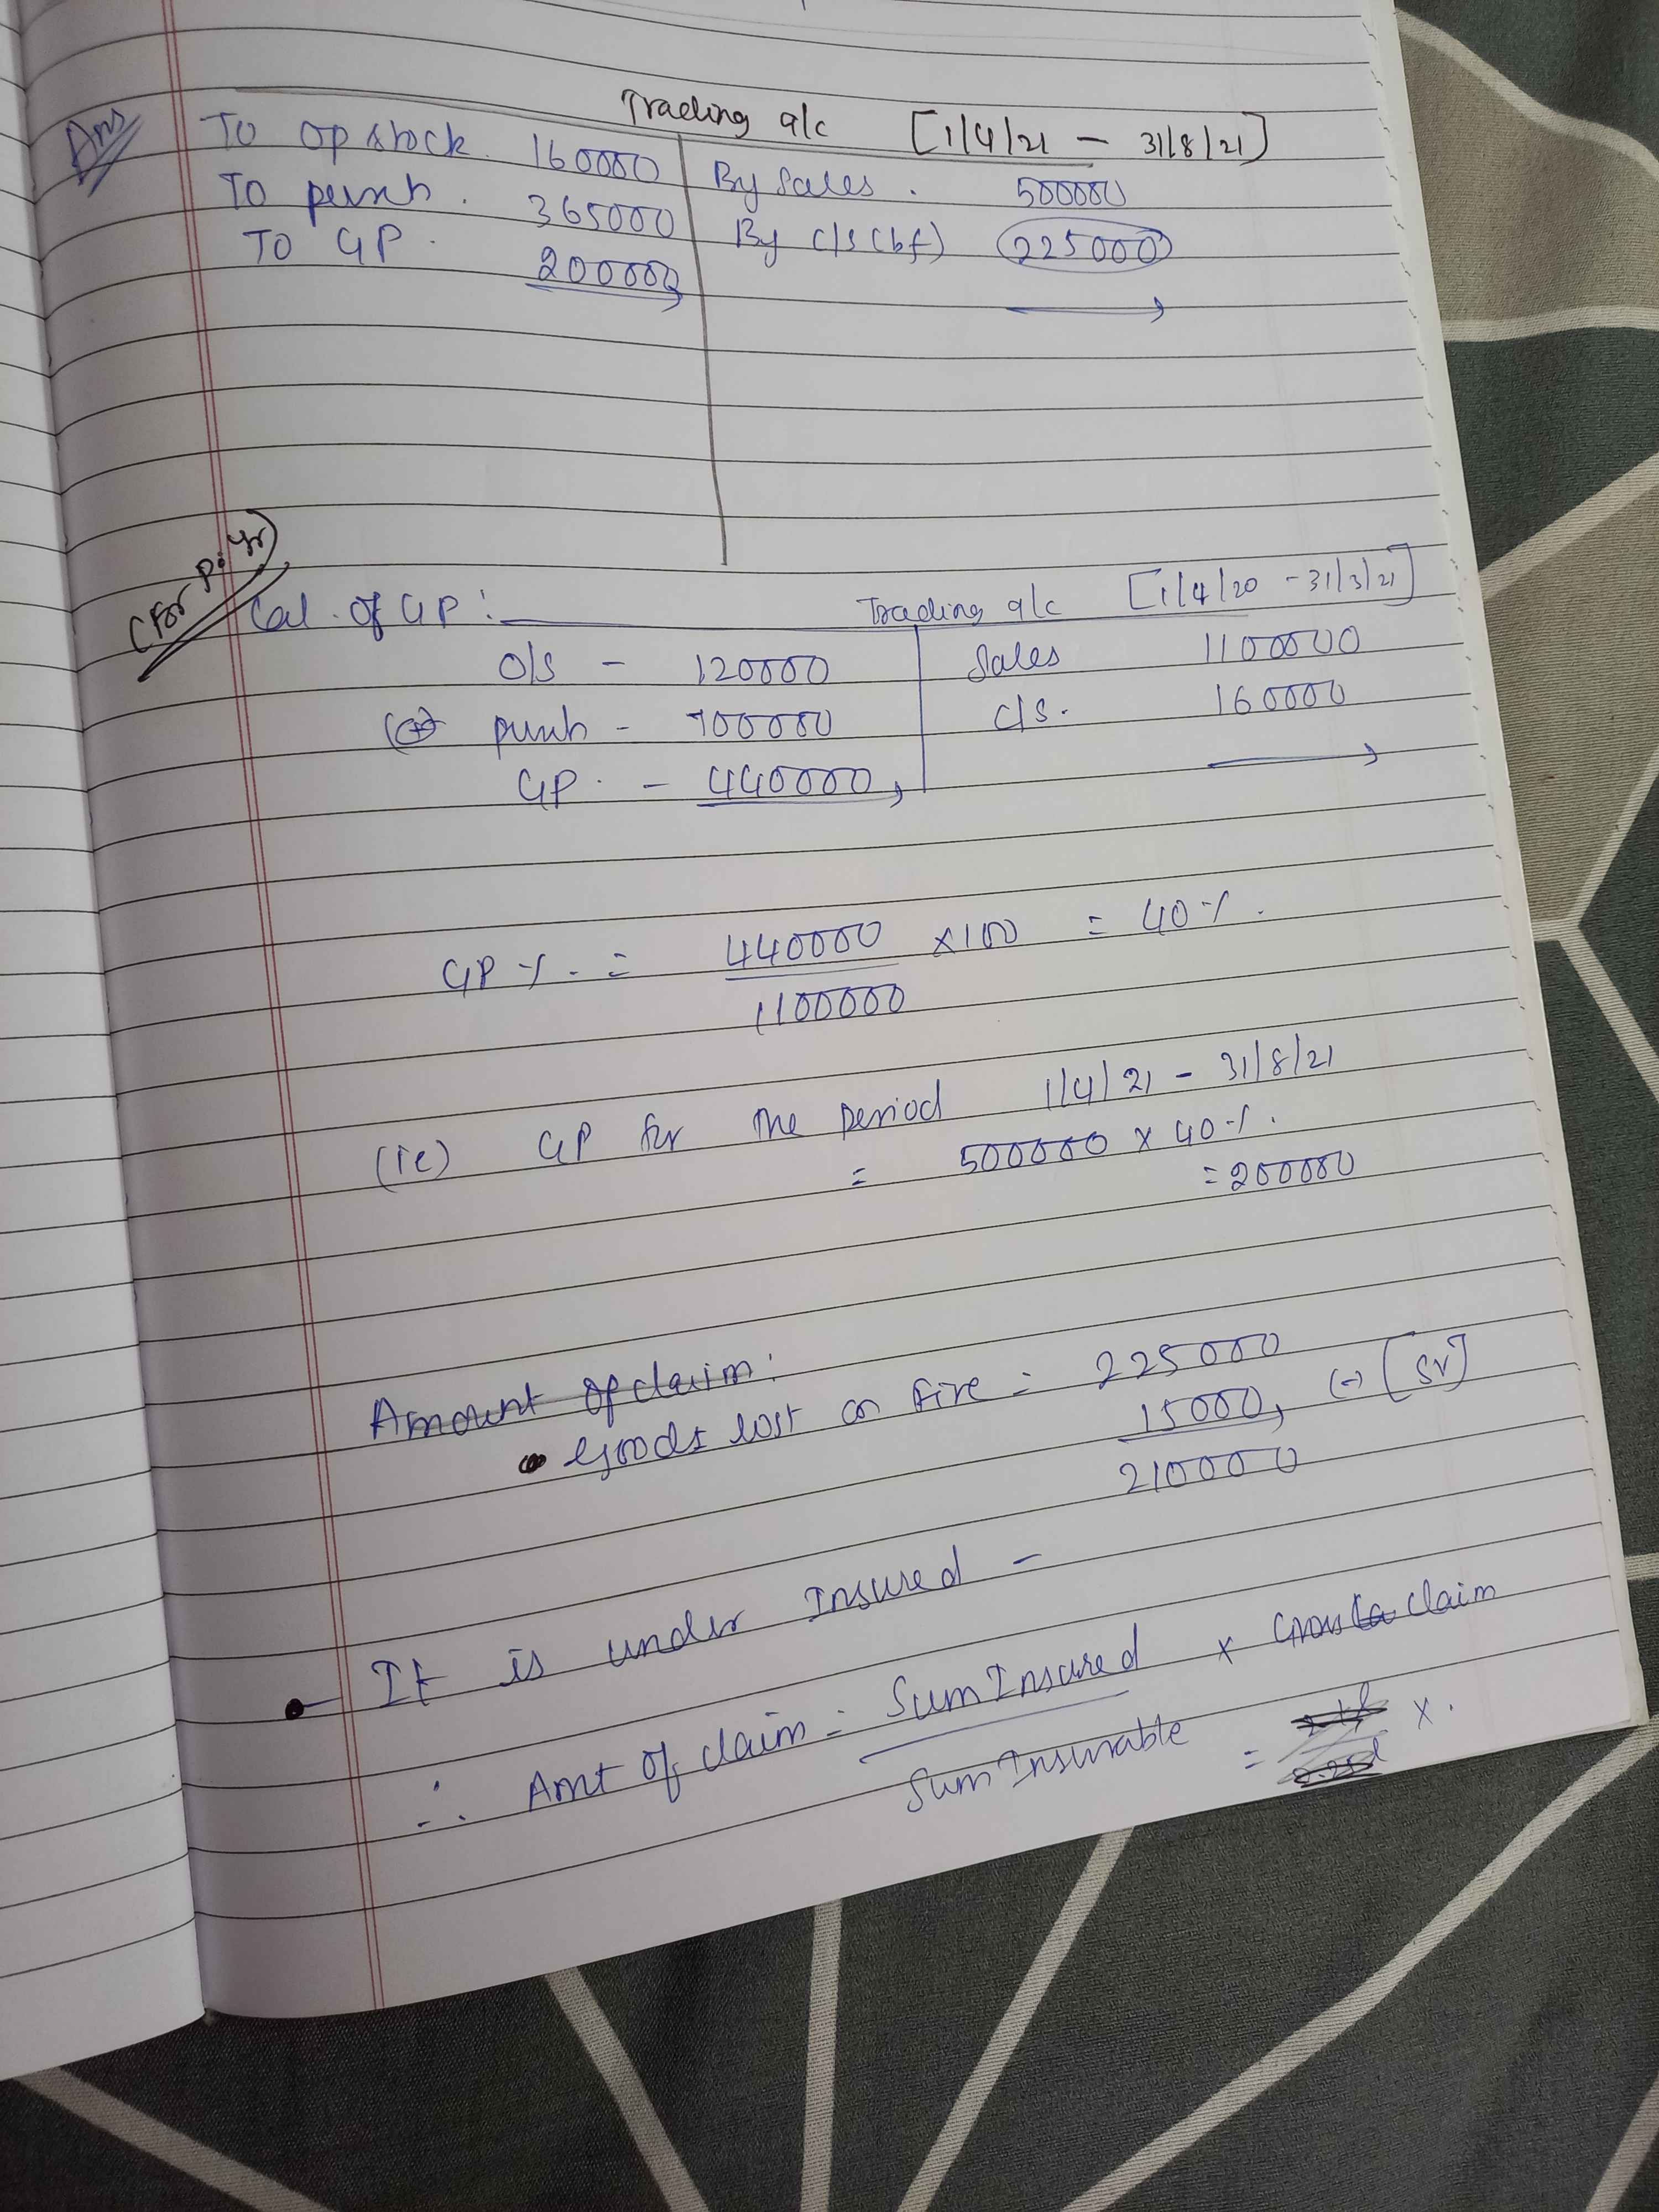 Ans
Trading a/c [1/4/21 - 31/8/21]
To op stock. 160000 By Sales. 500000
To purch. 365000 By c/s (bf) 225000
To GP. 200000
(For P. yr)
Cal. of GP: Trading a/c [1/4/20 - 31/3/21]
O/S - 120000 Sales 1100000
(+) purch - 700000 c/s. 160000
GP. - 440000
GP %. = 440000 x100 = 40%.
1100000
(ie) GP for the period 1/4/21 - 31/8/21
= 500000 x 40%.
= 200000
Amount of claim:
Goods lost on fire = 225000
15000, (-) [SV]
210000
It is under Insured -
∴ Amt of claim = Sum Insured x Gross claim
Sum Insurable = x.